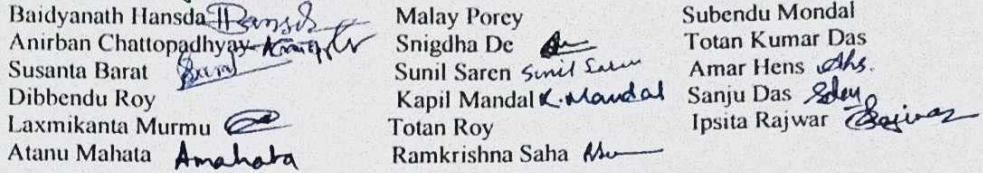 Baidyanath Hansda Hansda
Anirban Chattopadhyay
Susanta Barat
Dibbendu Roy
Laxmikanta Murmu
Atanu Mahata Amahata
Malay Porey
Snigdha De
Sunil Saren Sunil Saren
Kapil Mandal K. Mandal
Totan Roy
Ramkrishna Saha
Subendu Mondal
Totan Kumar Das
Amar Hens
Sanju Das
Ipsita Rajwar